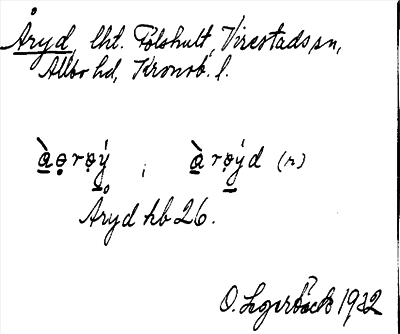 Åryd, lht. Fölshult, Virestads sn,
Allbo hd, Kronob. l.
ὰ̲ə̣rø̣ý̲ ; ὰ̲rø̣ý̲d (n)
Åryd hb 26.
O. 1932